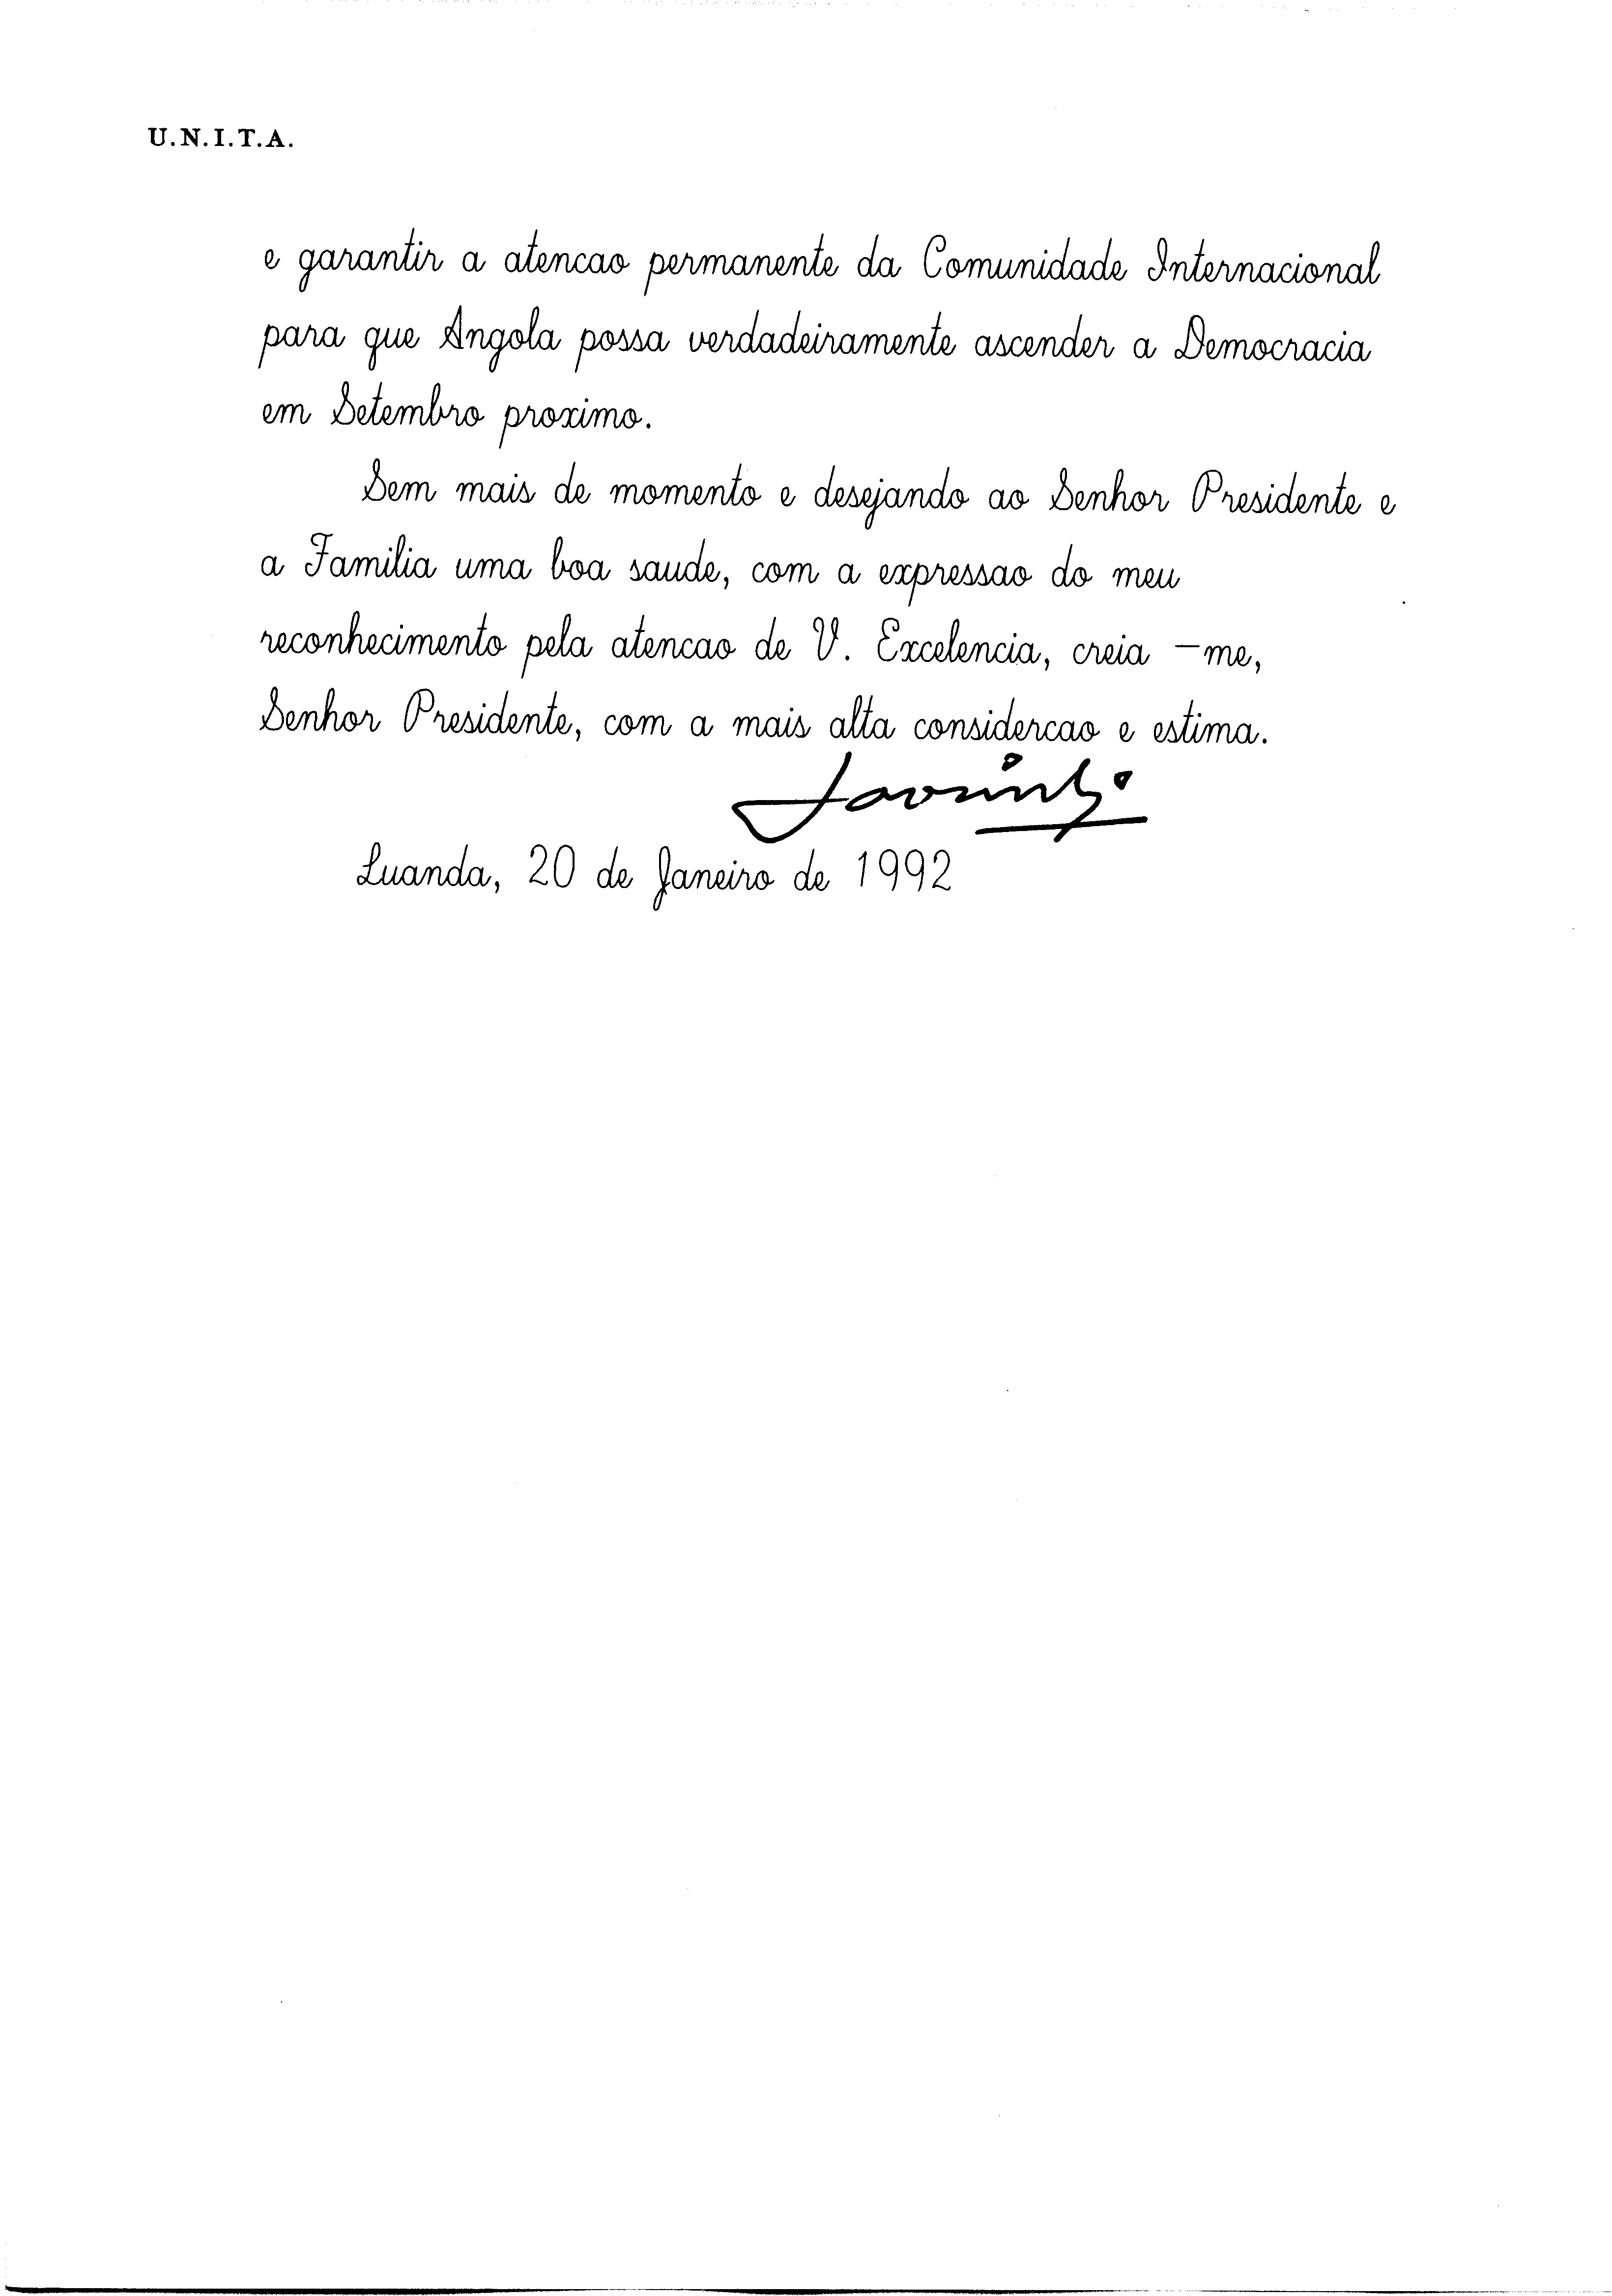 U.N.I.T.A.
e garantir a atencao permanente da Comunidade Internacional
para que Angola possa verdadeiramente ascender a Democracia
em Setembro proximo.
Sem mais de momento e desejando ao Senhor Presidente e
a Familia uma boa saude, com a expressao do meu
reconhecimento pela atencao de V. Excelencia, creia -me,
Senhor Presidente, com a mais alta consideracao e estima.
Savimbi
Luanda, 20 de Janeiro de 1992